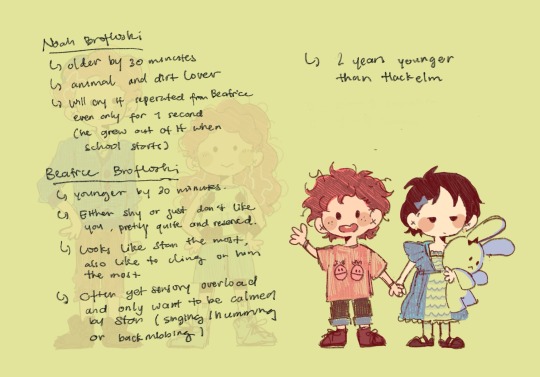 Noah Broflovski
↳ older by 30 minutes
↳ animal and dirt lover
↳ will cry if seperated from Beatrice
even only for 1 second
(he grew out of it when
school starts)
Beatrice Broflovski
↳ younger by 30 minutes.
↳ Either shy or just don't like
you, pretty quite and reserved.
↳ Looks like Stan the most,
also like to cling on him
the most
↳ Often get sensory overload
and only want to be calmed
by Stan (singing/humming
or backrubbing)
↳ 2 years younger
than Hackelm